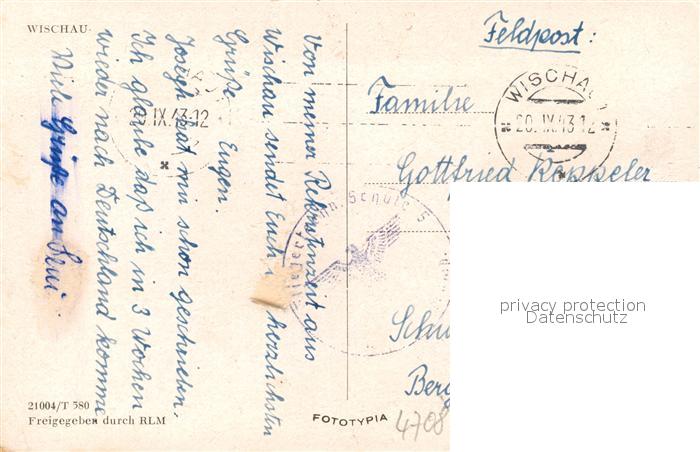 WISCHAU
Feldpost:
WISCHAU
20.IX.43.12
Familie
Gottfried Keppeler
Schu
Berg
privacy protection
Datenschutz
Von meiner Rekrutenzeit aus
Wischau sendet Euch herzlichsten
Grüße Eugen.
Joseph hat mir schon geschrieben.
Ich glaube daß ich in 3 Wochen
wieder nach Deutschland komme
Viele Grüße an
IX.43.12
Schule 5
21004/T 580
Freigegeben durch RLM
FOTOTYPIA
4708